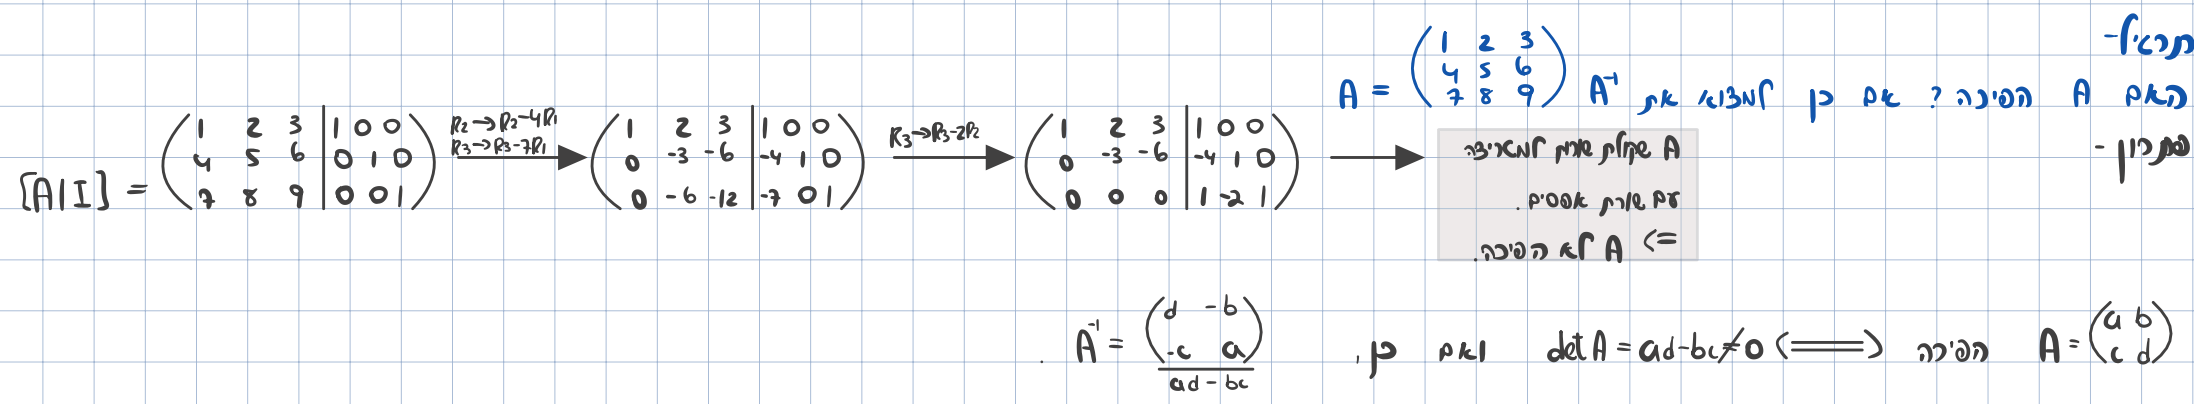 תרגיל-
האם A הפיכה? אם כן למצוא את A⁻¹ A = (1 2 3; 4 5 6; 7 8 9)
פתרון -
[A|I] = (1 2 3 | 1 0 0; 4 5 6 | 0 1 0; 7 8 9 | 0 0 1) R2→R2-4R1 R3→R3-7R1 → (1 2 3 | 1 0 0; 0 -3 -6 | -4 1 0; 0 -6 -12 | -7 0 1) R3→R3-2R2 → (1 2 3 | 1 0 0; 0 -3 -6 | -4 1 0; 0 0 0 | 1 -2 1) →
A שקולת שורות למטריצה
עם שורת אפסים.
<= A לא הפיכה.
A = (a b; c d) הפיכה <=> det A = ad-bc≠0 ואם כן, A⁻¹ = (d -b; -c a) / ad-bc .